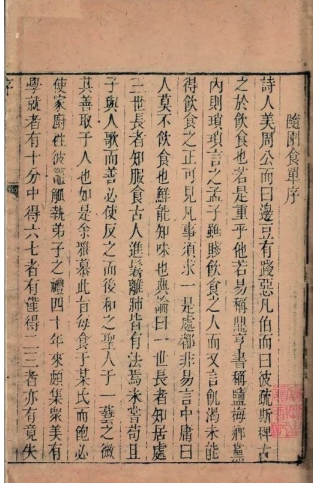 隨園食單序
詩人美周公而曰籩豆有踐惡凡伯而曰彼疏斯稗古
之於飲食也若是重乎他若易稱鼎亨書稱鹽梅鄉黨
內則瑣瑣言之孟子雖賤飲食之人而又言飢渴未能
得飲食之正可見凡事須求一是處都非易言中庸曰
人莫不飲食也鮮能知味也典論曰一世長者知居處
三世長者知服食古人進鬐離肺皆有法焉未嘗苟且
子與人歌而善必使反之而後和之聖人于一藝之微
其善取于人也如是余雅慕此旨每食于某氏而飽必
使家廚往彼竈觚執弟子之禮四十年來頗集衆美有
學就者有十分中得六七者有僅得二三者亦有竟失
序